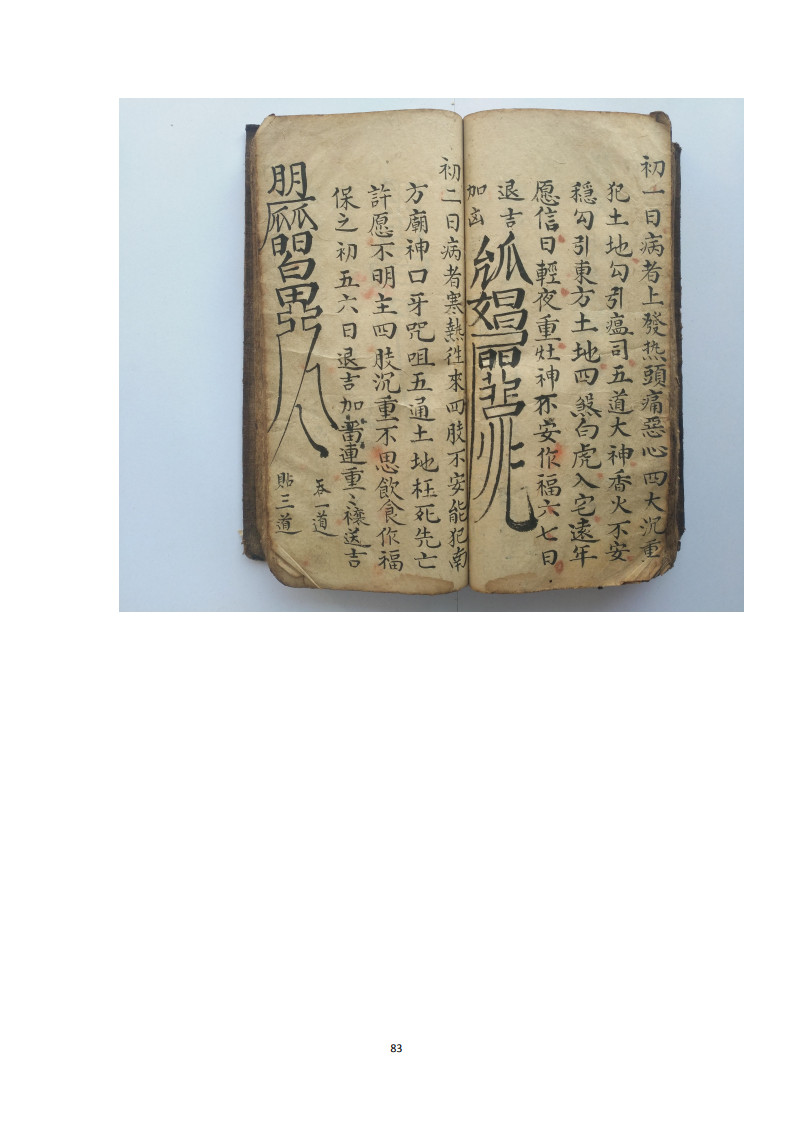 初一日病者上發热頭痛惡心四大沉重
犯土地勾引瘟司五道大神香火不安
穩勾引東方土地四煞白虎入宅遠年
愿信日輕夜重灶神不安作福六七日
退吉
加凶
初二日病者寒熱徃來四肢不安能犯南
方廟神口牙咒咀五通土地枉死先亡
許愿不明主四肢沉重不思飲食作福
保之初五六日退吉加連重〻禳送吉
吞一道
貼三道
83